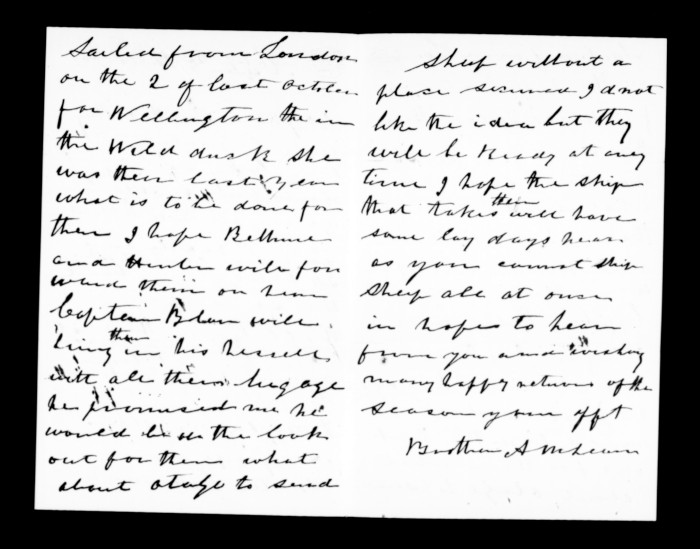 Sailed from London
on the 2 of last October
for Wellington the in
the Wild dusk she
was their last year
what is to be done for
them I hope Bethune
and Hunter will for
ward them on hear
Captain Blan will
bring them in his vessell
with all their lugage
he promised me he
would be on the look
out for them what
about otago to send
sheep without a
place secured I d not
like the idea but they
will be Ready at any
time I hope the ship
that takes them will have
some lay days hear
as you cannot ship
sheep all at once
in hopes to hear
from you and wishing
many happy returns of the
season your afft
Brother A McLean